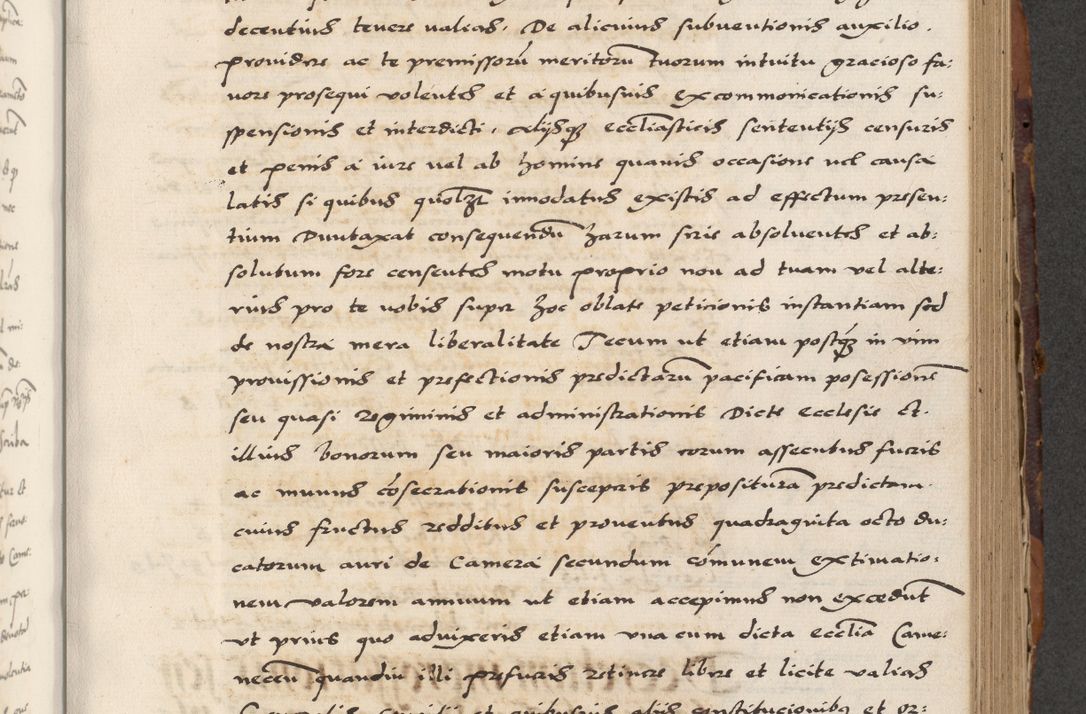 decentius tenere valias, De alicuius subuentionis auxilio.
prouidere ac te premissorũ meritorũ tuorum intuitu gracioso fa:
uore prosequi volentes et a quibusuis excommonicationis su:
spensionis et interdicti, alijsqȝ ecclĩasticis sententijs censuris
et penis a iure vel ab homine quauis occasione vel causa
latis si quibus quolꝫt innodatus existis ad effectum presen:
tium Duntaxat consequendũ harum serie absoluentes et ab:
solutum fore censentes motu proprio non ad tuam vel alte:
rius pro te nobis super hoc oblate peticionis instantiam sed
de nostra mera liberalitate Tecum ut etiam postqȝ in vim
prouissionis et prefectionis predictarũ pacificam posessionẽ
seu quasi regiminis et administrationis Dicte ecclesie et.
illius bonorum seu maioris partis eorum assecutus fueris
ac munus cõsecrationis susceperis prepositurã predictam.
cuius fructus redditus et prouentus quadraginta octo du:
catorum auri de Camera secundum cõmunem extimatio:
nem valorem annuum ut etiam accepimus non excedũt
vt prius quo aduixeris etiam vna cum dicta ecclĩa Came:
necen̄ quandiu illi prefueris retinere libere et licite valias